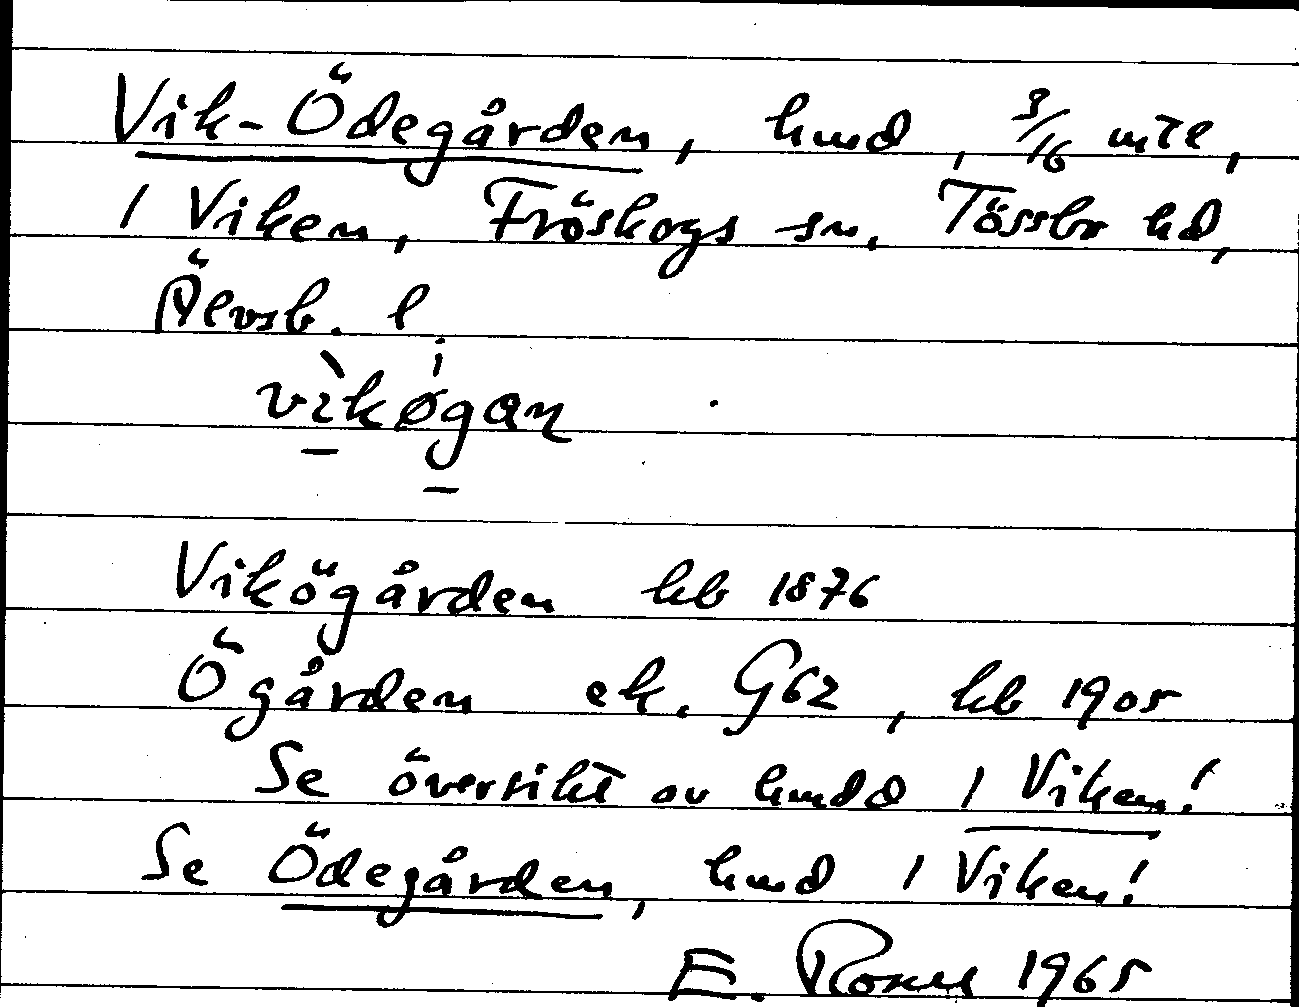 Vik-Ödegården, hmd, 3/16 mtl,
1 Viken, Fröskogs sn, Tössbo hd,
Älvsb. l
vikøgan
Vikögården kb 1876
Ögården ek. G62, kb 1905
Se översikt av hmdd 1 Viken!
Se Ödegården, hmd 1 Viken!
E. 1965